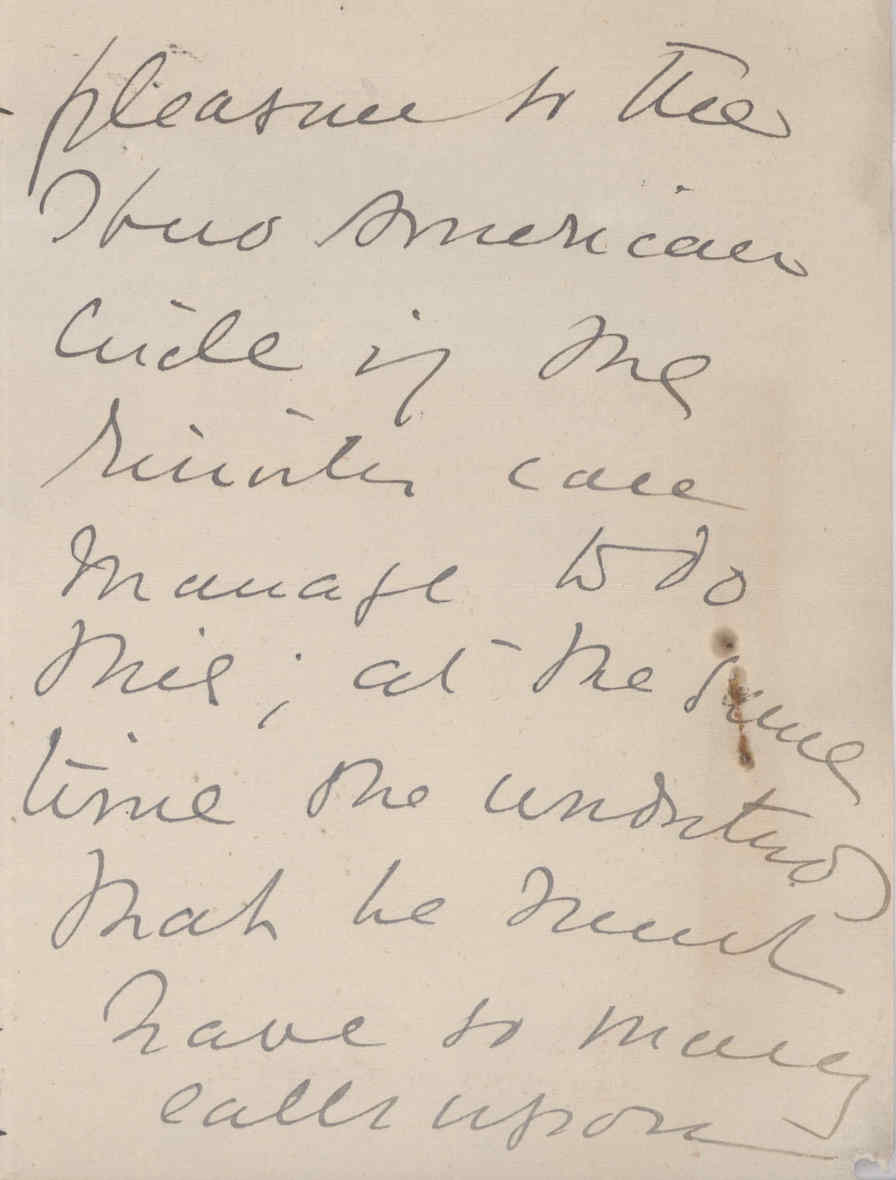 pleasure to the
Ibero American
Circle if the
Minister can
manage to do
this; at the same
time she understands
that he must
have so many
calls upon